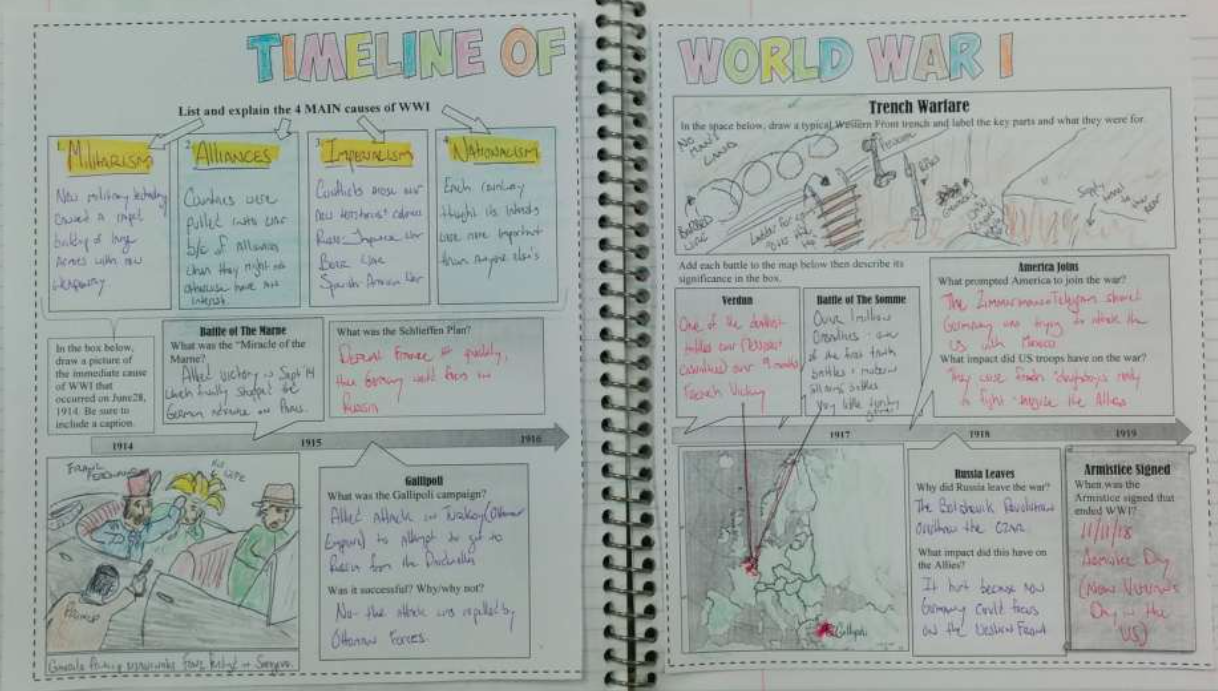 TIMELINE OF
List and explain the 4 MAIN causes of WWI
1. MILITARISM
New military technology
caused a rapid
building of large
Armies with new
weaponry.
2. ALLIANCES
Countries were
pulled into war
b/c of alliances
when they might not
otherwise have had
interest.
3. IMPERIALISM
Conflicts arose over
new territories + colonies
Russo-Japanese War
Boer War
Spanish American War
4. NATIONALISM
Each country
thought its interests
were more important
than anyone else's
In the box below,
draw a picture of
the immediate cause
of WWI that
occurred on June28,
1914. Be sure to
include a caption.
Battle of The Marne
What was the "Miracle of the
Marne?
Allied victory in Sept '14
which finally stopped the
German advance on Paris.
What was the Schlieffen Plan?
Defeat France quickly,
then Germany could focus on
Russia
1914
1915
1916
FRANZ
FERDINAND
HIS
WIFE
PRINCIP
Gavrilo Princip assassinates Franz Ferdinand in Sarajevo.
Gallipoli
What was the Gallipoli campaign?
Allied Attack on Turkey (Ottoman
Empire) to attempt to get to
Russia from the Dardanelles
Was it successful? Why/why not?
No- the attack was repelled by
Ottoman Forces.
WORLD WAR I
Trench Warfare
In the space below, draw a typical Western Front trench and label the key parts and what they were for.
NO MAN'S
LAND
BARBED
WIRE
Ladder for
Periscope
Rifles
Supply
to the
REAR
Add each battle to the map below then describe its
significance in the box.
Verdun
One of the deadliest
battles ever
casualties) over 9 months
French Victory
Battle of The Somme
Over 1 million
Casualties - one
of the first
battles
Very little territory
gained
America Joins
What prompted America to join the war?
The Zimmerman Telegram showed
Germany was trying to attack the
US with Mexico
What impact did US troops have on the war?
They were fresh doughboys ready
to fight the Allies
1917
1918
1919
Gallipoli
Russia Leaves
Why did Russia leave the war?
The Bolshevik Revolution
overthrew the CZAR
What impact did this have on
the Allies?
It hurt because now
Germany could focus
on the Western Front
Armistice Signed
When was the
Armistice signed that
ended WWI?
11/11/18
Armistice Day
(Now Veteran's
Day in the
US)